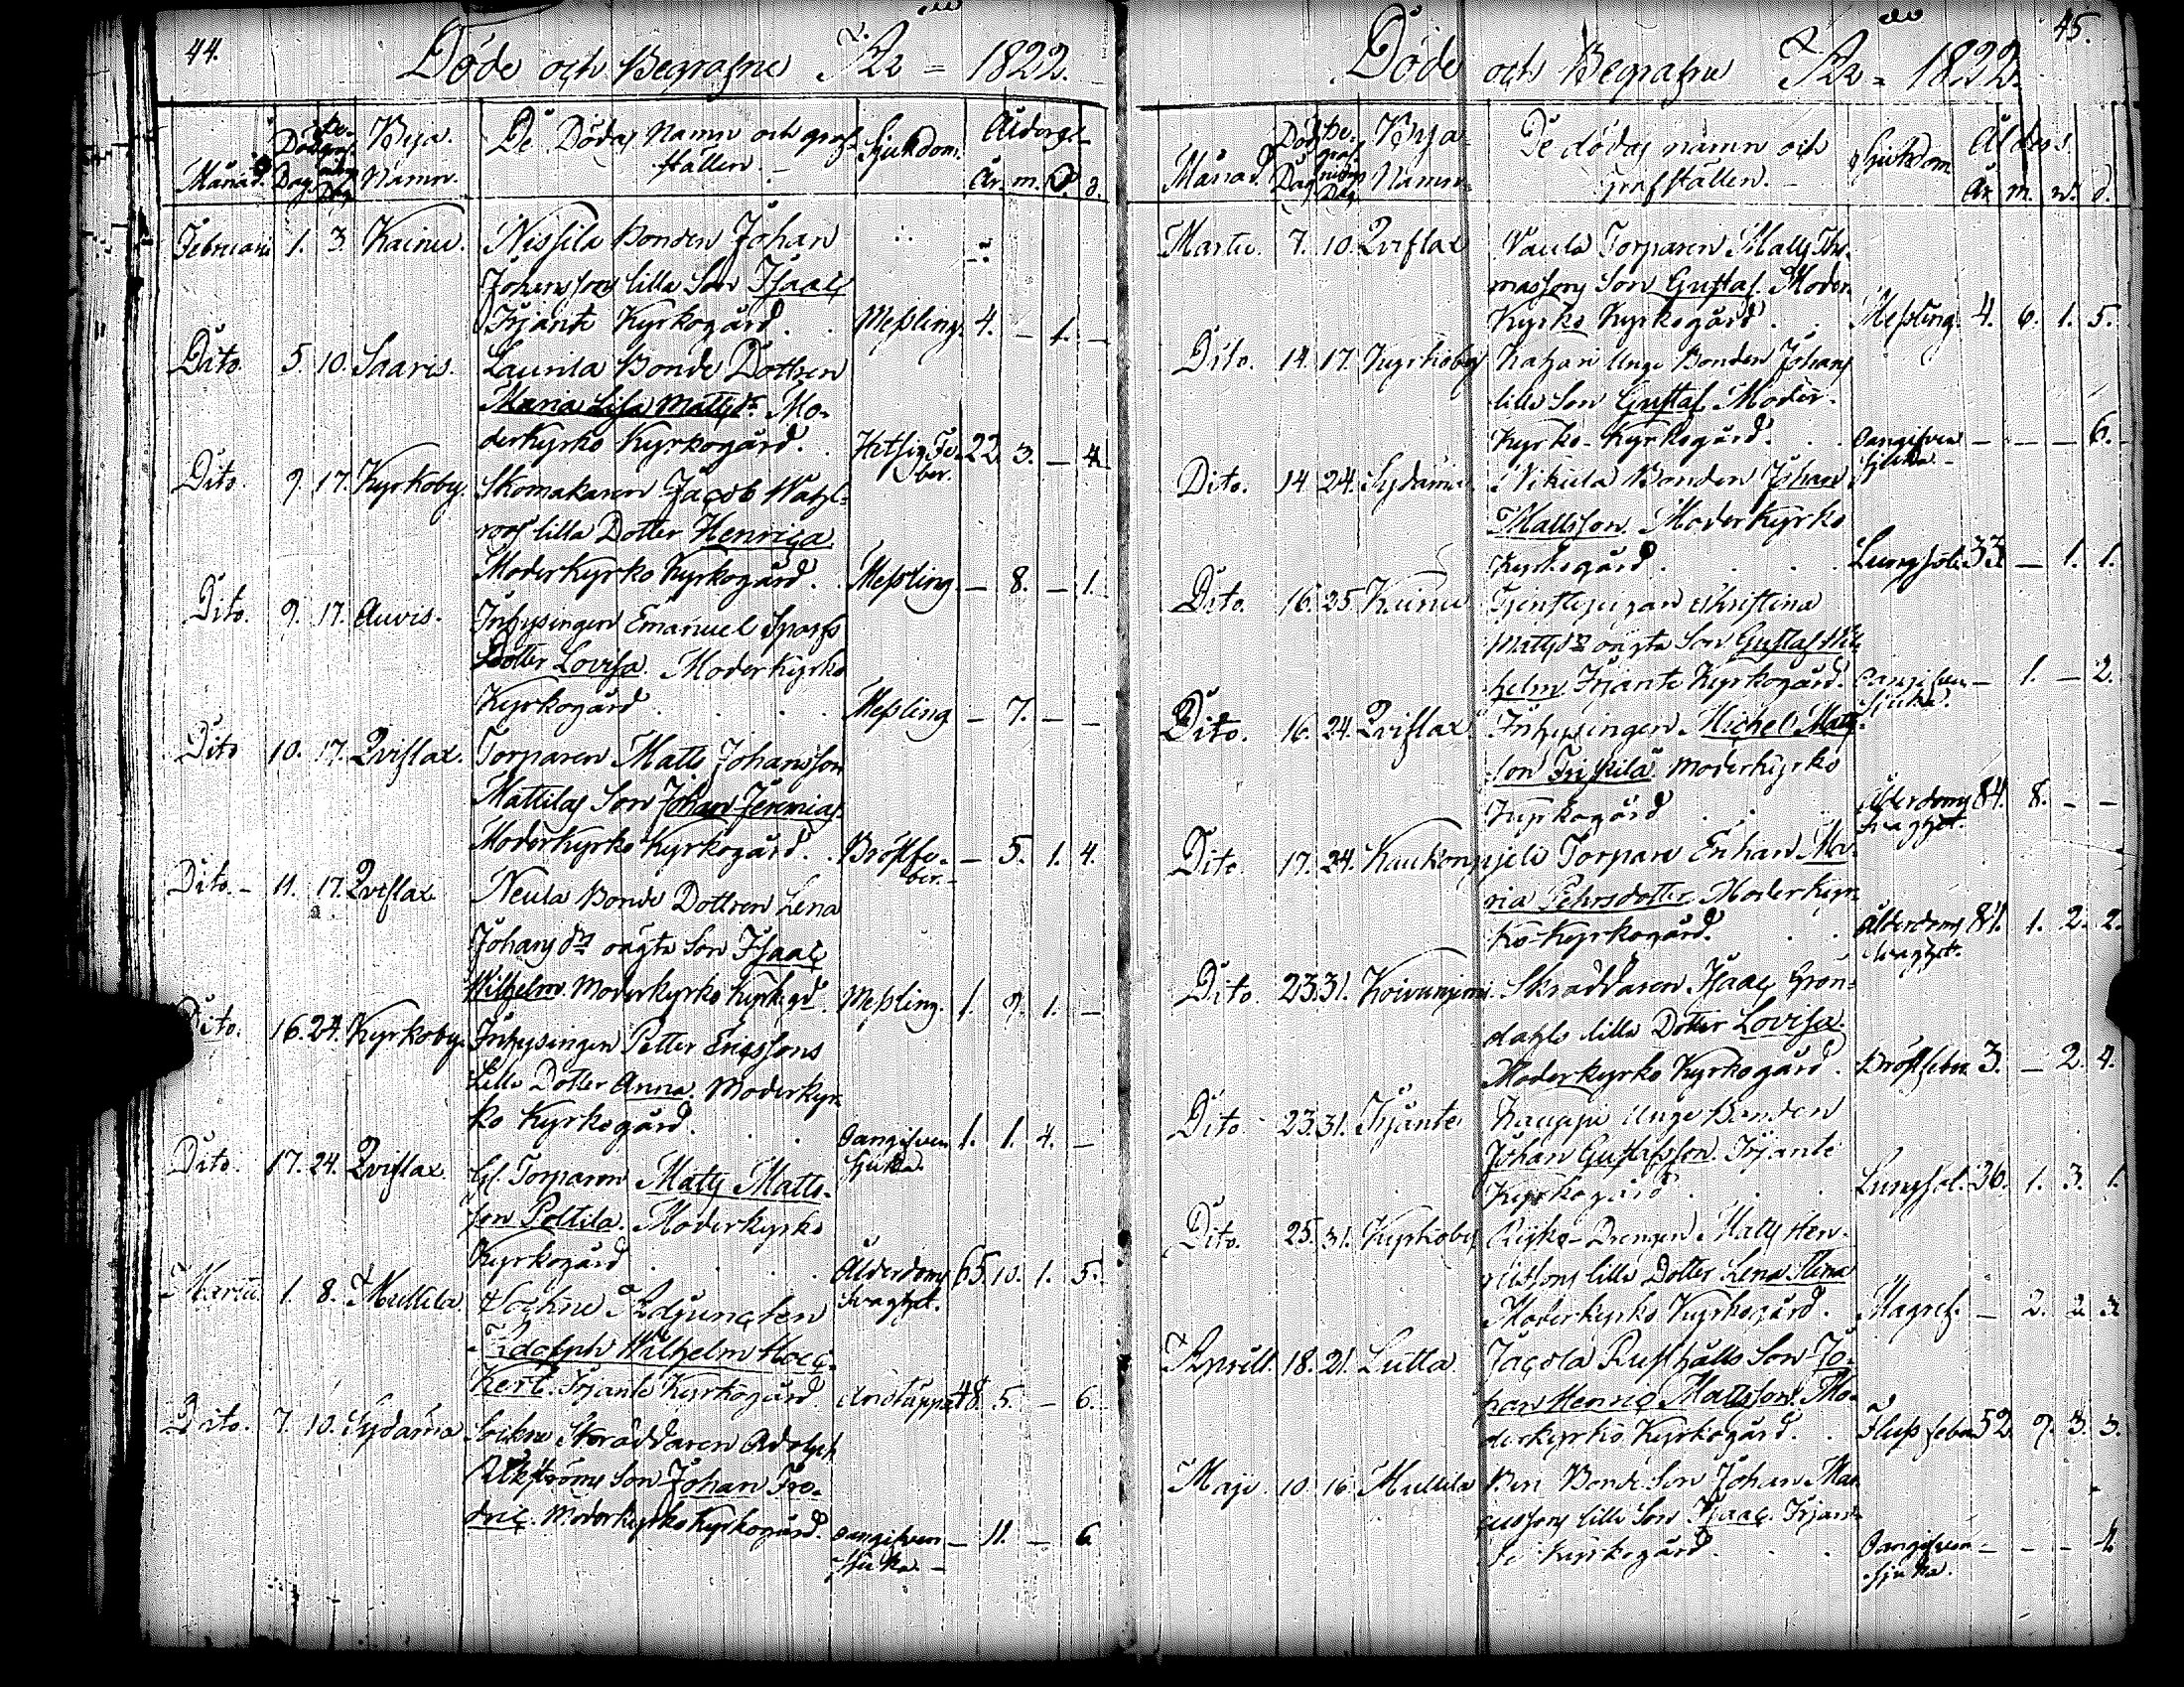 44.
Döde och Begrafne År = 1822.
Månad. Döds Dag Begrafnings Dag Byja Namn. De Dödas Namn och graf Ställen. Sjukdom. Ålders År. m. v. d.
Februarii 1. 3. Kainu. Nissila Bonden Johan
Johanssons lilla Son Isaac
Irjante Kyrkogård. Messling. 4. – 1. –
Dito. 5. 10. Saaris. Launia Bonde Dottren
Maria Lisa Mattsdr. Mo-
derkyrko Kyrkogård. Hetsig Fe- 22. 3. – 4.
ber.
Dito. 9. 17. Kyrkoby. Skomakaren Jacob Wahl-
roos lilla Dotter Henrica
Moderkyrko Kyrkogård. Messling. – 8. – 1.
Dito. 9. 17. Auvis. Inhysingen Emanuel Sparfs
Dotter Lovisa. Moderkyrko
Kyrkogård. Messling – 7. – –
Dito 10. 17. Qviflax. Torparen Matts Johansson
Mattilas Son Johan Jeremias.
Moderkyrko Kyrkogård. Bröstfe- – 5. 1. 4.
ber.
Dito. 11. 17. Qviflax Neula Bonde Dottren Lena
Johansdr oägta Son Isaac
Wilhelm. Moderkyrko Kyrkogd. Messling. 1. 9. 1. –
Dito. 16. 24. Kyrkoby Inhysingen Petter Ericssons
Lilla Dotter Anna. Moderkyr-
ko Kyrkogård. Oangifven 1. 1. 4. –
sjuka.
Dito. 17. 24. Qviflax. Gl. Torparen Matts Matts-
son Polttila. Moderkyrko
Kyrkogård. Ålderdoms 65. 10. 1. 5.
svaghet.
Martii 1. 8. Mullila. Sockne Adjuncten
Adolph Wilhelm Hoec-
kert. Irjante Kyrkogård. Andtäppa 48. 5. – 6.
Dito. 7. 10. Sydänma Sockne Skräddaren Adolph
Ekströms Son Johan Fre-
dric. Moderkyrko Kyrkogård. Oangifven – 11. – 6.
sjuka. –
45.
Döde och Begrafne År = 1822.
Månad. Döds Dag Begrafnings Dag. Byja Namn. De dödas namn och graf Ställen. Sjukdom Ålders År m. v. d.
Martii. 7. 10. Qviflax Vaula Torparen Matts Tho-
massons Son Gustaf. Moder
Kyrko Kyrkogård. Messling. 4. 6. 1. 5.
Dito. 14. 17. Kyrkoby Unge Bonden Johans
lilla Son Gustaf Moder-
Kyrko-Kyrkogård. Oangifven – – – 6.
sjuka. –
Dito. 14 24. Sydänma. Nikula Bonden Johan
Mattsson. Moderkyrko
Kyrkogård. Lungsot. 33 – 1. 1.
Dito. 16. 25. Kainu Tjenstepigan Christina
Mattsdr oägta Son Gustaf Wil-
helm. Irjante Kyrkogård. Oangifven – 1. – 2.
sjuka.
Dito. 16. 24. Qviflax Inhysingen Michel Matts-
son. Moderkyrko
Kyrkogård Ålderdoms 84. 8. – –
svaghet.
Dito. 17. 24. Kaukon Torpare Enkan Ma-
ria Pehrsdotter. Moderkyr-
ko-Kyrkogård. Ålderdoms 81. 1. 2. 2.
svaghet.
Dito 23. 31. Koivuniemi. Skräddaren Isaac Grön-
dahls lilla Dotter Lovisa.
Moderkyrko Kyrkogård. Bröstfeber 3. – 2. 4.
Dito 23. 31. Irjante Kauppi Unge Bonden
Johan Gustafsson. Irjante
Kyrkogård. Lungsot. 36. 1. 3. 1.
Dito. 25. 31. Kyrkoby Drengen Matts Hen-
ricssons lilla Dotter Lena Stina
Moderkyrko Kyrkogård. Magref. – 2. 2. 3.
Aprill. 18. 21. Lutta Jacola Rusthålls Son Jo-
han Henric Mattsson. Mo-
derkyrko Kyrkogård. Fluss feber 52. 9. 3. 3.
Maji. 10. 16. Mullila Bonde Son Johan Mar-
cussons lilla Son Isaac. Irjan-
te Kyrkogård. Oangifven – – – 4.
sjuka.